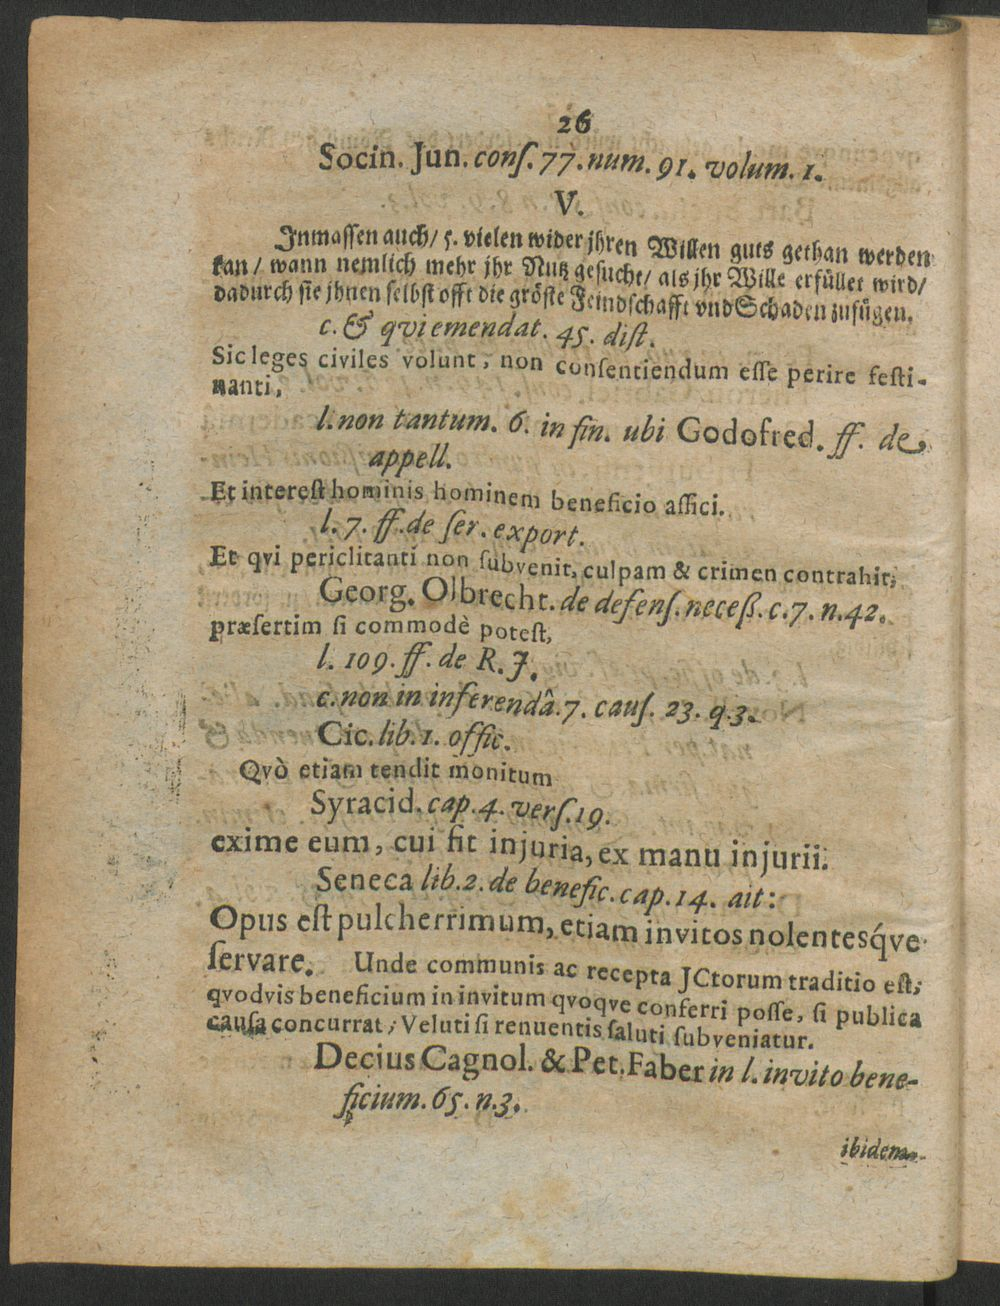 26
Socin. Jun. conſ. 77. num. 91. volum. 1.
V.
Inmaſſen auch/ 5. vielen wider jhren Willen guts gethan werden
kan/ wann nemlich mehr jhr Nutz geſucht/ als jhr Wille erfüllet wird/
dadurch ſie jhnen ſelbſt offt die gröſte Feindſchafft vnd Schaden zufügen.
c. & qvi emendat. 45. diſt.
Sic leges civiles volunt, non conſentiendum eſſe perire feſti-
nanti,
l. non tantum. 6. in fin. ubi Godofred. ff. de
appell.
Et intereſt hominis hominem beneficio affici.
l. 7. ff. de ſer. export.
Et qvi periclitanti non ſubvenit, culpam & crimen contrahit,
Georg. Olbrecht. de defenſ. neceß. c. 7. n. 42.
præſertim ſi commodè poteſt,
l. 109. ff. de R. J.
c. non in inferendâ. 7. cauſ. 23. q. 3.
Cic. lib. 1. offic.
Qvò etiam tendit monitum
Syracid. cap. 4. verſ. 19.
exime eum, cui fit injuria, ex manu injurii.
Seneca lib. 2. de benefic. cap. 14. ait:
Opus eſt pulcherrimum, etiam invitos nolentesq́ve
ſervare. Unde communis ac recepta JCtorum traditio eſt,
qvodvis beneficium in invitum qvoqve conferri poſſe, ſi publica
cauſa concurrat, Veluti ſi renuentis ſaluti ſubveniatur.
Decius Cagnol. & Pet. Faber in l. invito bene-
ficium. 65. n. 3.
ibidem